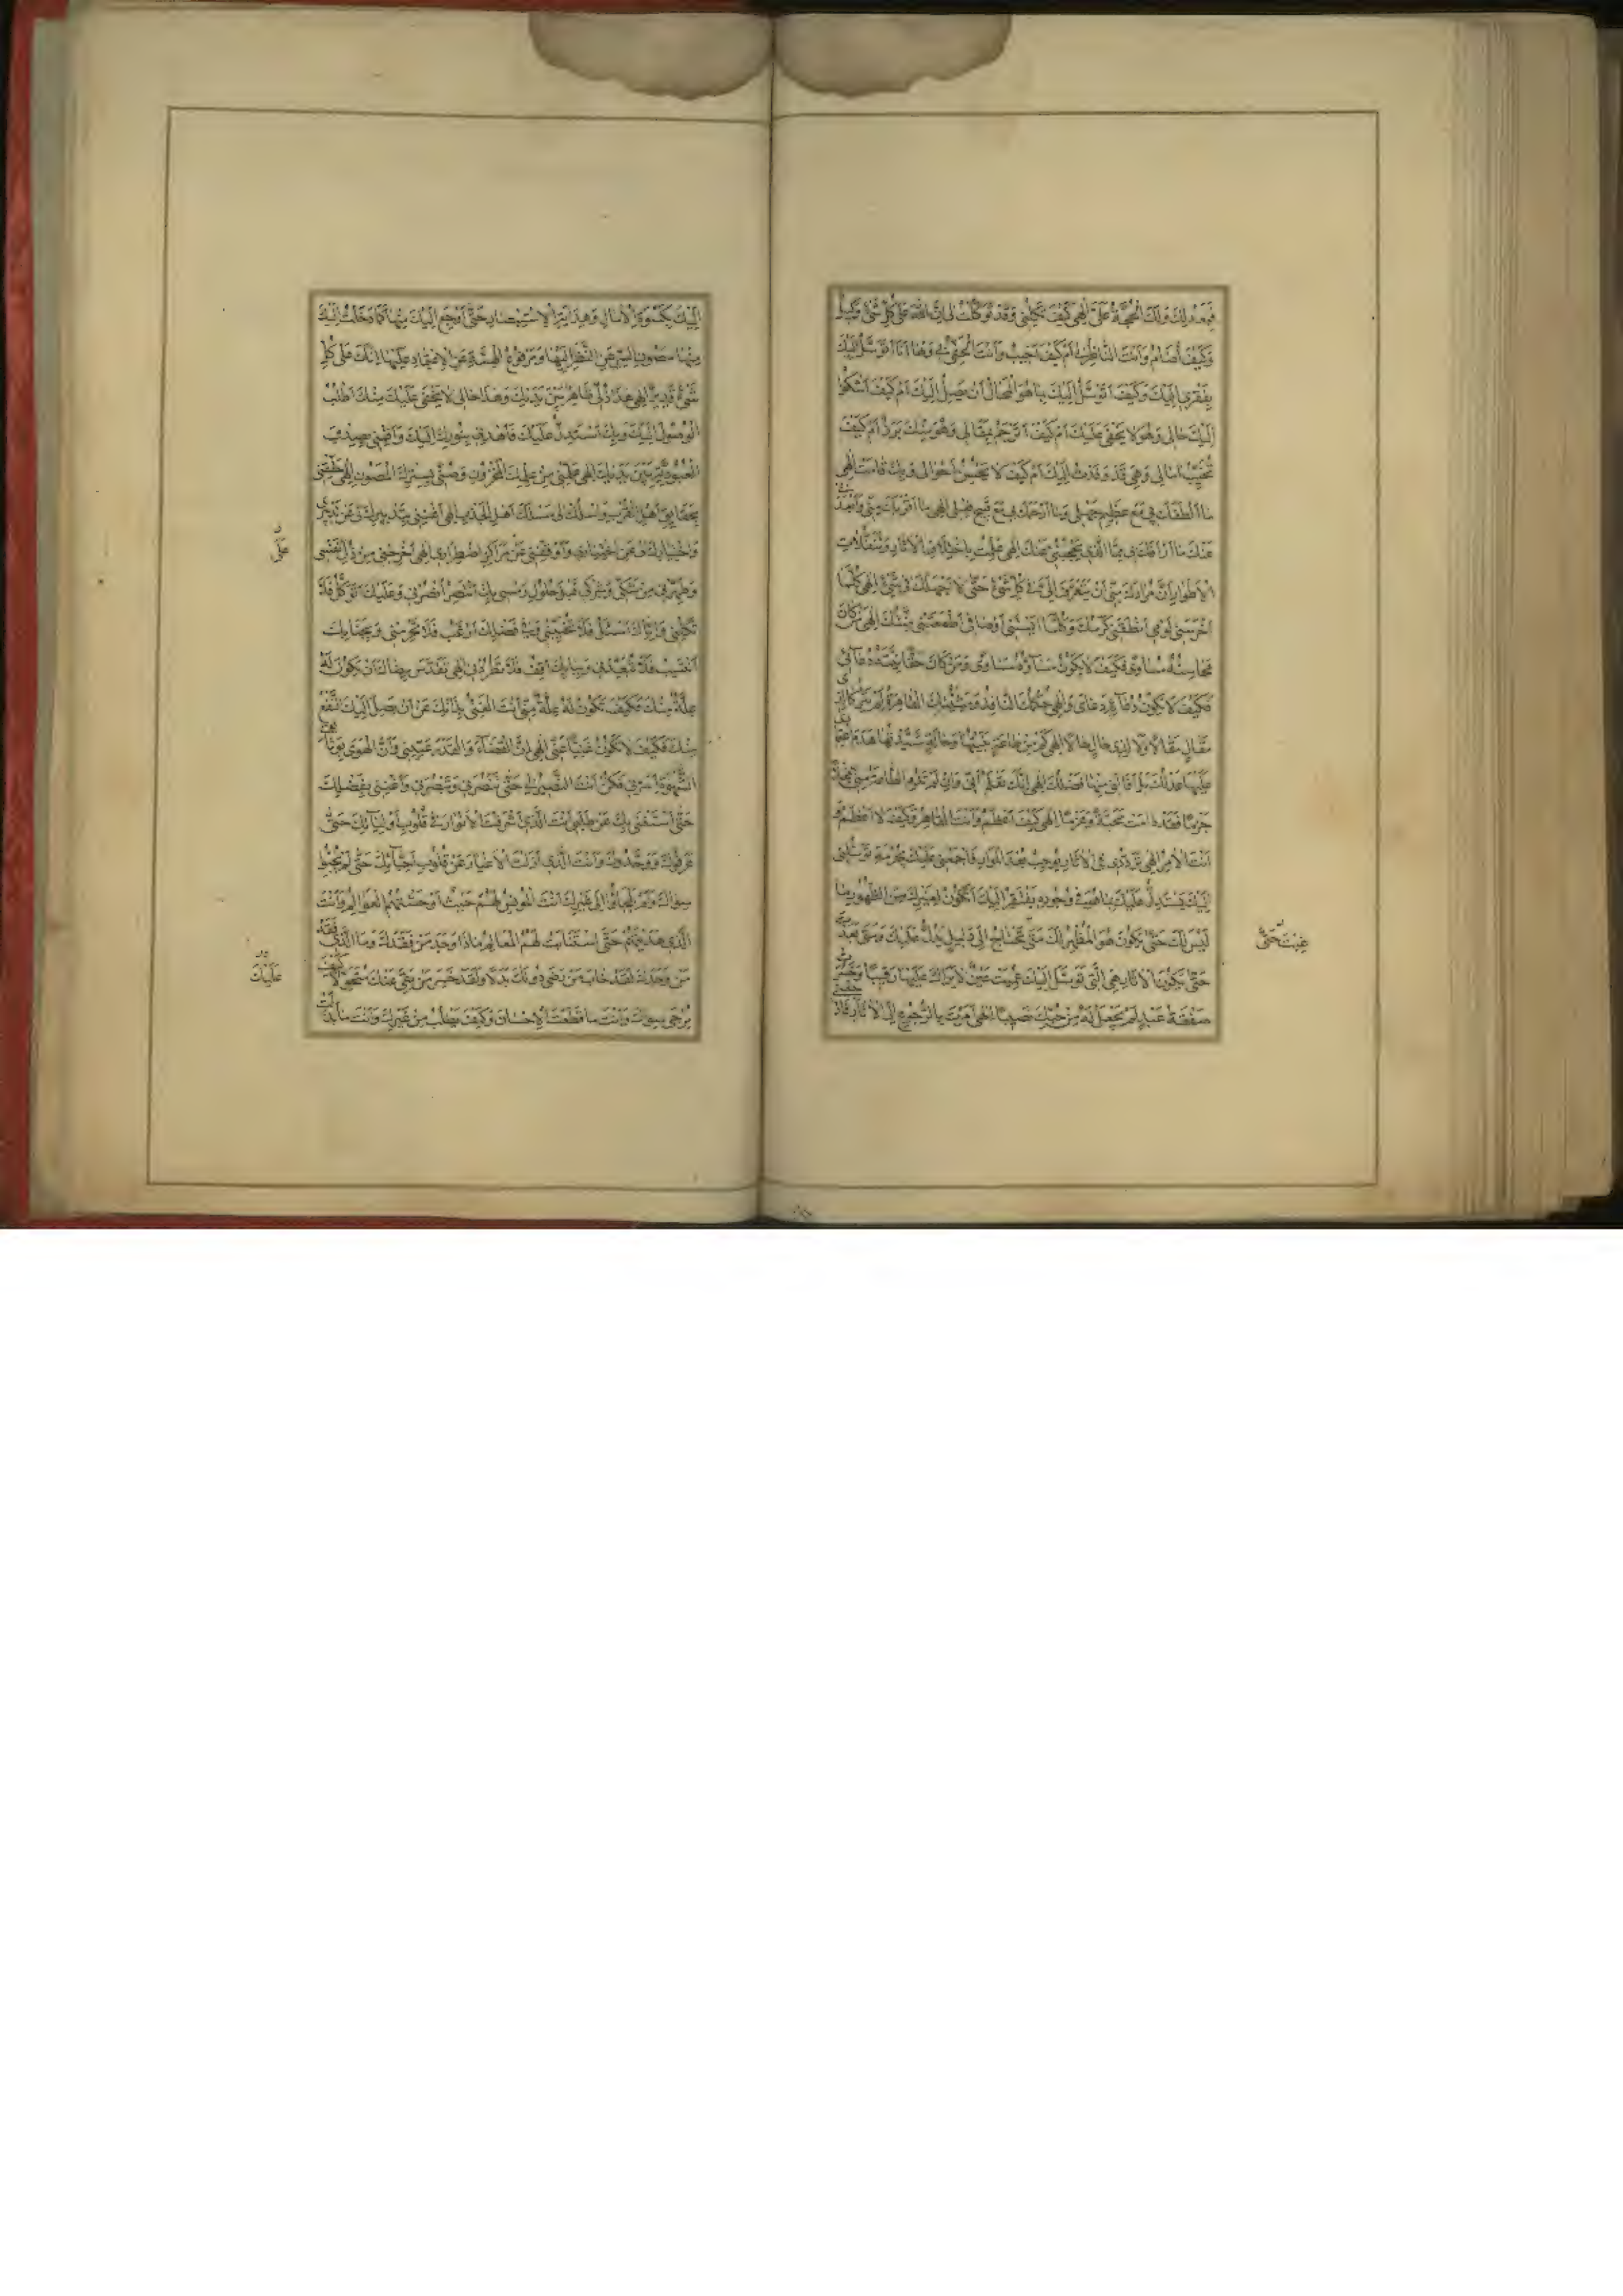 فَبِعَدْلِكَ وَلَكَ الْحُجَّةُ عَلَيَّ اِلٰهِي كَيْفَ تَكِلُنِي وَقَدْ تَوَكَّلْتُ
وَكَيْفَ اُضَامُ وَاَنْتَ النَّاصِرُ لِي اَمْ كَيْفَ اَخِيبُ وَاَنْتَ الْحَفِيُّ بِي وَهَا اَنَا اَتَوَسَّلُ اِلَيْكَ
بِفَقْرِي اِلَيْكَ وَكَيْفَ اَتَوَسَّلُ اِلَيْكَ بِمَا هُوَ مَحَالٌ اَنْ يَصِلَ اِلَيْكَ اَمْ كَيْفَ اَشْكُو
اِلَيْكَ حَالِي وَهُوَ لَا يَخْفَى عَلَيْكَ اَمْ كَيْفَ اُتَرْجِمُ بِمَقَالِي وَهُوَ مِنْكَ بَرَزٌ اَمْ كَيْفَ
تُخَيِّبُ اٰمَالِي وَهِيَ قَدْ وَفَدَتْ اِلَيْكَ اَمْ كَيْفَ لَا تُحْسِنُ اَحْوَالِي وَبِكَ قَامَتْ اِلٰهِي
مَا اَلْطَفَكَ بِي مَعَ عَظِيمِ جَهْلِي وَمَا اَرْحَمَكَ بِي مَعَ قَبِيحِ فِعْلِي اِلٰهِي مَا اَقْرَبَكَ مِنِّي وَاَبْعَدَنِي
عَنْكَ مَا اَرْاَفَكَ بِي فَمَا الَّذِي يَحْجُبُنِي عَنْكَ اِلٰهِي عَلِمْتُ بِاخْتِلَافِ الْاٰثَارِ وَتَنَقُّلَاتِ
الْاَطْوَارِ اَنَّ مُرَادَكَ مِنِّي اَنْ تَتَعَرَّفَ اِلَيَّ فِي كُلِّ شَيْءٍ حَتَّى لَا اَجْهَلَكَ فِي شَيْءٍ اِلٰهِي كُلَّمَا
اَخْرَسَنِي لُؤْمِي اَنْطَقَنِي كَرَمُكَ وَكُلَّمَا اٰيَسَتْنِي اَوْصَافِي اَطْمَعَتْنِي مِنَنُكَ اِلٰهِي مَنْ كَانَتْ
مَحَاسِنُهُ مَسَاوِيَ فَكَيْفَ لَا يَكُونُ مَسَاوِيهِ مَسَاوِيَ وَمَنْ كَانَتْ حَقَايِقُهُ دَعَاوِيَ
فَكَيْفَ لَا يَكُونُ دَعَاوِيهِ دَعَاوِيَ اِلٰهِي حُكْمُكَ النَّافِذُ وَمَشِيَّتُكَ الْقَاهِرَةُ لَمْ يَتْرُكَا لِذِي
مَقَالٍ مَقَالًا وَلَا لِذِي حَالٍ حَالًا اِلٰهِي كَمْ مِنْ طَاعَةٍ بَنَيْتُهَا وَحَالَةٍ شَيَّدْتُهَا هَدَمَ اعْتِمَادِي
عَلَيْهَا عَدْلُكَ بَلْ اَقَالَنِي مِنْهَا فَضْلُكَ اِلٰهِي اِنَّكَ تَعْلَمُ اَنِّي وَاِنْ لَمْ تَدُمِ الطَّاعَةُ مِنِّي فِعْلًا
جَزْمًا فَقَدْ دَامَتْ مَحَبَّةً وَعَزْمًا اِلٰهِي كَيْفَ اَعْزِمُ وَاَنْتَ الْقَاهِرُ وَكَيْفَ لَا اَعْزِمُ وَ
اَنْتَ الْاٰمِرُ اِلٰهِي تَرَدُّدِي فِي الْاٰثَارِ يُوجِبُ بُعْدَ الْمَزَارِ فَاجْمَعْنِي عَلَيْكَ بِخِدْمَةٍ تُوصِلُنِي
اِلَيْكَ كَيْفَ يُسْتَدَلُّ عَلَيْكَ بِمَا هُوَ فِي وُجُودِهِ مُفْتَقِرٌ اِلَيْكَ اَيَكُونُ لِغَيْرِكَ مِنَ الظُّهُورِ مَا
لَيْسَ لَكَ حَتَّى يَكُونَ هُوَ الْمُظْهِرَ لَكَ مَتَى تَحْتَاجُ اِلَى دَلِيلٍ يَدُلُّ عَلَيْكَ وَمَتَى بَعُدْتَ
غِبْتَ حَتَّى
حَتَّى تَكُونَ الْاٰثَارُ هِيَ الَّتِي تُوصِلُ اِلَيْكَ عَمِيَتْ عَيْنٌ لَا تَرَاكَ عَلَيْهَا رَقِيبًا وَخَسِرَتْ
صَفْقَةُ عَبْدٍ لَمْ تَجْعَلْ لَهُ مِنْ حُبِّكَ نَصِيبًا اِلٰهِي اَمَرْتَ بِالرُّجُوعِ اِلَى الْاٰثَارِ
اِلَيْكَ بِكِسْوَةِ الْاَنْوَارِ وَهِدَايَةِ الْاِسْتِبْصَارِ حَتَّى اَرْجِعَ اِلَيْكَ مِنْهَا كَمَا دَخَلْتُ اِلَيْكَ
مِنْهَا مَصُونَ السِّرِّ عَنِ النَّظَرِ اِلَيْهَا وَمَرْفُوعَ الْهِمَّةِ عَنِ الْاِعْتِمَادِ عَلَيْهَا اِنَّكَ عَلَى كُلِّ
شَيْءٍ قَدِيرٌ اِلٰهِي هَذَا ذُلِّي ظَاهِرٌ بَيْنَ يَدَيْكَ وَهَذَا حَالِي لَا يَخْفَى عَلَيْكَ مِنْكَ اَطْلُبُ
الْوُصُولَ اِلَيْكَ وَبِكَ اَسْتَدِلُّ عَلَيْكَ فَاهْدِنِي بِنُورِكَ اِلَيْكَ وَاَقِمْنِي بِصِدْقِ
الْعُبُودِيَّةِ بَيْنَ يَدَيْكَ اِلٰهِي عَلِّمْنِي مِنْ عِلْمِكَ الْمَخْزُونِ وَصُنِّي بِسِتْرِكَ الْمَصُونِ اِلٰهِي حَقِّقْنِي
بِحَقَايِقِ اَهْلِ الْقُرْبِ وَاسْلُكْ بِي مَسْلَكَ اَهْلِ الْجَذْبِ اِلٰهِي اَغْنِنِي بِتَدْبِيرِكَ لِي عَنْ تَدْبِيرِي
وَاخْتِيَارِكَ عَنِ اخْتِيَارِي وَاَوْقِفْنِي عَنْ مَرَاكِزِ اضْطِرَارِي اِلٰهِي اَخْرِجْنِي مِنْ ذُلِّ نَفْسِي
عَلَى
وَطَهِّرْنِي مِنْ شَكِّي وَشِرْكِي قَبْلَ حُلُولِ رَمْسِي بِكَ اَنْتَصِرُ فَانْصُرْنِي وَعَلَيْكَ اَتَوَكَّلُ فَلَا
تَكِلْنِي وَاِيَّاكَ اَسْئَلُ فَلَا تُخَيِّبْنِي وَفِي فَضْلِكَ اَرْغَبُ فَلَا تَحْرِمْنِي وَبِجَنَابِكَ
اَنْتَسِبُ فَلَا تُبْعِدْنِي وَبِبَابِكَ اَقِفُ فَلَا تَطْرُدْنِي اِلٰهِي تَقَدَّسَ رِضَاكَ اَنْ تَكُونَ لَهُ
عِلَّةٌ مِنْكَ فَكَيْفَ تَكُونُ لَهُ عِلَّةٌ مِنِّي اَنْتَ الْغَنِيُّ بِذَاتِكَ عَنْ اَنْ يَصِلَ اِلَيْكَ النَّفْعُ
مِنْكَ فَكَيْفَ لَا تَكُونُ غَنِيًّا عَنِّي اِلٰهِي اِنَّ الْقَضَاءَ وَالْقَدَرَ يُمَنِّينِي وَاَنَّ الْهَوَى بِوَثَائِقِ
الشَّهْوَةِ اَسَرَنِي فَكُنْ اَنْتَ النَّصِيرَ لِي حَتَّى تَنْصُرَنِي وَتُبَصِّرَنِي وَاَغْنِنِي بِفَضْلِكَ
حَتَّى اَسْتَغْنِيَ بِكَ عَنْ طَلَبِي اَنْتَ الَّذِي اَشْرَقْتَ الْاَنْوَارَ فِي قُلُوبِ اَوْلِيَائِكَ حَتَّى
عَرَفُوكَ وَوَحَّدُوكَ وَاَنْتَ الَّذِي اَزَلْتَ الْاَغْيَارَ عَنْ قُلُوبِ اَحِبَّائِكَ حَتَّى لَمْ يُحِبُّوا
سِوَاكَ وَلَمْ يَلْجَئُوا اِلَى غَيْرِكَ اَنْتَ الْمُونِسُ لَهُمْ حَيْثُ اَوْحَشَتْهُمُ الْعَوَالِمُ وَاَنْتَ
الَّذِي هَدَيْتَهُمْ حَتَّى اسْتَبَانَتْ لَهُمُ الْمَعَالِمُ مَاذَا وَجَدَ مَنْ فَقَدَكَ وَمَا الَّذِي فَقَدَ
مَنْ وَجَدَكَ لَقَدْ خَابَ مَنْ رَضِيَ دُونَكَ بَدَلًا وَلَقَدْ خَسِرَ مَنْ بَغَى عَنْكَ مُتَحَوِّلًا كَيْفَ
عَلَيْكَ
يُرْجَى سِوَاكَ وَاَنْتَ مَا قَطَعْتَ الْاِحْسَانَ وَكَيْفَ يُطْلَبُ مِنْ غَيْرِكَ وَاَنْتَ مَا بَدَّلْتَ